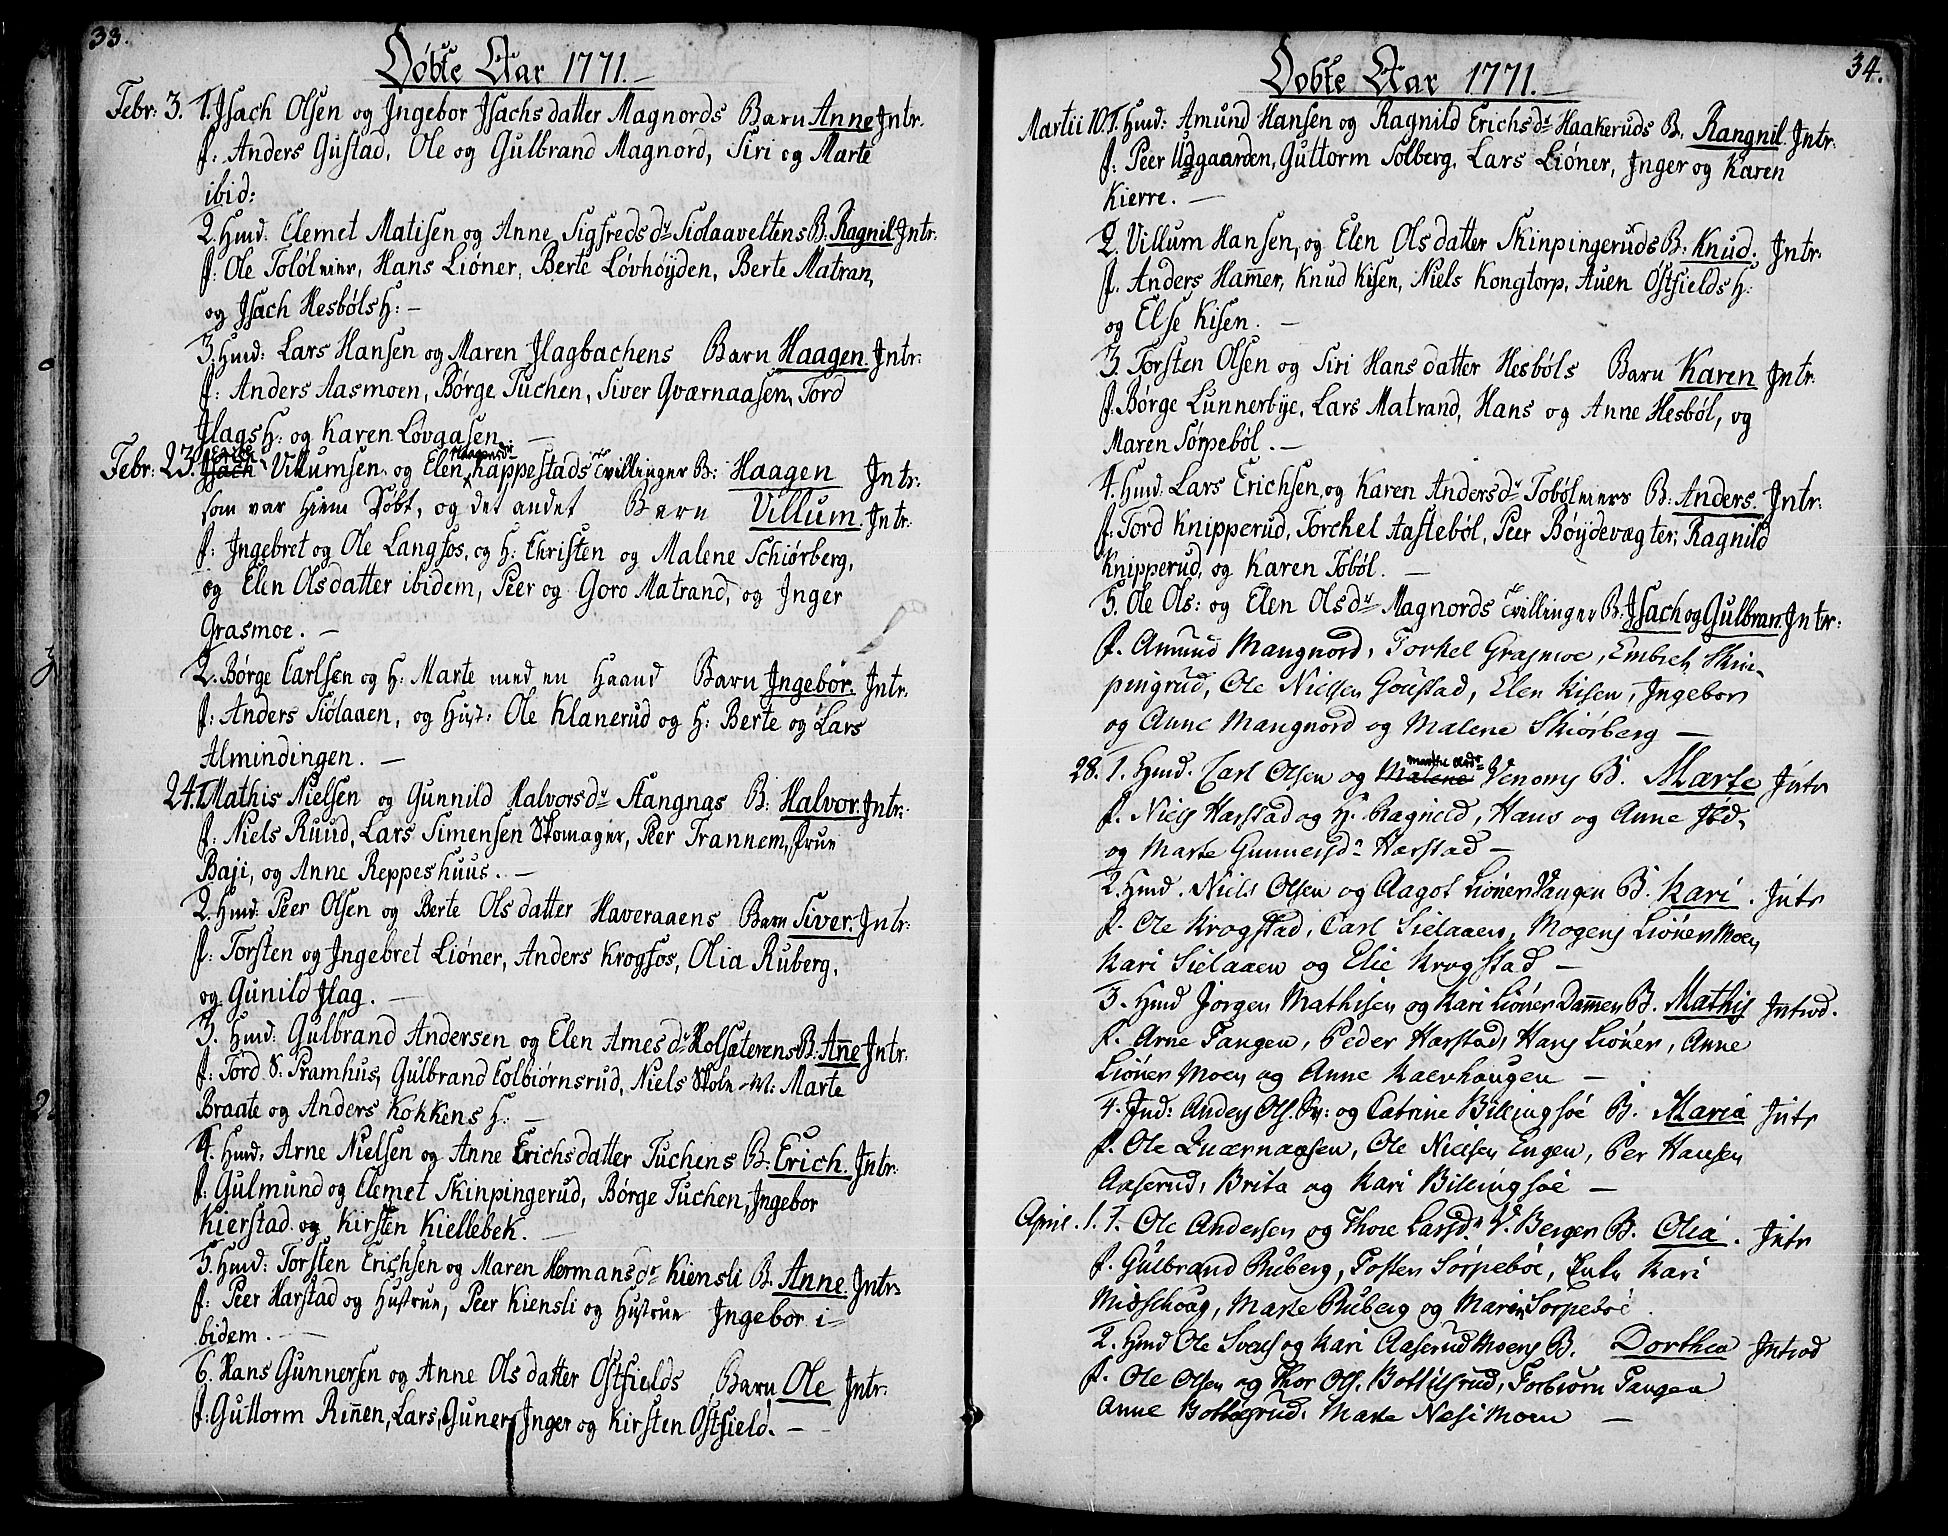 33.
Døbte Aar 1771.
Febr: 3. 1. Jsach Olsen og Ingebor Jsachsdatter Magnords Barn Anne Jntr.
f: Anders Gustad, Ole og Gulbrand Magnord, Siri og Marte
ibid:
2. Hmd. Clemet Matisen og Anne Sigfredsdr Siolaaveltens B: Ragnil Jntr:
f: Ole Tolølener, Hans Liöner, Berte Lövhöyden, Berte Matran,
og Jsach Hesböls H: —
3. Hmd: Lars Hansen og Maren Jlagbachens Barn Haagen. Jntr:
f: Anders Aasmoen, Børge Tuchen, Siver Qværnaasen, Tord
Jlags H: og Karen Lövaasen. —
Febr: 23. Jsach Erich Villumsen og Elen Haagensdr Kappestads Tvillinger B: Haagen Jntr:
som var hiem Døbt, og det andet Barn Villum. Jntr:
f: Ingebret og Ole Langfos, og H: Christen og Malene Schiørberg,
og Elen Olsdatter ibidem, Peer og Goro Matrand, og Inger
Grasmoe. —
2. Børge Carlsen og H: Marte med en Haand Barn Ingebor. Jntr.
f: Anders Siólaaen, og Hust: Ole Klanerud og H: Berte og Lars
Almindingen. —
24. 1. Mathis Nielsen og Gunnild Halvorsdr Stangnas B: Halvor. Jntr:
f: Niels Ruud, Lars Simensen Skomager, Peer Trannem, Prue
Baji, og Anne Reppeshuus. —
2. Hmd: Peer Olsen og Berte Olsdatter Haveraaens Barn Siver. Jntr:
f: Torsten og Ingebret Liöner, Anders Krogfos, Olia Ruberg,
og Gunild Jlag. —
3. Hmd: Gulbrand Andersen og Elen Arnesdr Holsæterens B: Anne Jntr:
f: Tord S: Pramhus, Gulbrand Colbiørnsrud, Niels Skole M: Marte
Braate og Anders Kokkens H: —
4. Hmd: Arne Nielsen og Anne Erichsdatter Tuchens B: Erich. Jntr:
f: Gulmund og Clemet Skinpingerud, Børge Tuchen, Ingebor
Kierstad og Kirsten Kiellebek. —
5. Hmd: Torsten Erichsen og Maren Hermansdr Kiensli B: Anne. Jntr:
f: Peer Harstad og Hustrue, Peer Kiensli og Hustrue Ingebor i-
bidem. —
6. Hans Gunnersen og Anne Olsdatter Østfields Barn Ole Jntr:
f: Guttorm Rinnen, Lars, Guner, Inger og Kirsten Østfield. —
34.
Döbte Aar 1771.
Martii 10. 1. Hmd: Amund Hansen og Ragnild Erichsdr Haakeruds B. Rangnil. Jntr:
f: Peer Udgaarden, Guttorm Solberg, Lars Liöner, Inger og Karen
Kierre. —
2. Villum Hansen, og Elen Olsdatter Skinpingeruds B: Knud. Jntr:
f. Anders Hammer, Knud Kisen, Niels Kongtorp, Auen Østfields H:
og Else Kisen. —
3. Torsten Olsen og Siri Hansdatter Hesböls Barn Karen Jntr:
f. Børge Lunnerbye, Lars Matrand, Hans og Anne Hesböl, og
Maren Sörpeböl. —
4. Hmd. Lars Erichsen, og Karen Andersdr Tobölniers B: Anders. Jntr:
f: Tord Knipperud, Torchel Aasteböl, Peer Böydevægter, Ragnild
Knipperud, og Karen Toböl. —
5. Ole Ols: og Elen Olsdr Magnords Tvillinger B: Jsach og Gulbran. Jntr:
f. Amund Mangnord, Torkel Grasmoe, Embret Skin-
pingrud, Ole Nielsen Goustad, Elen Kisen, Ingebor
og Anne Mangnord og Malene Skiörberg —
28. 1. Hmd. Carl Olsen og Malene Marthe Andr Venons B. Marte Jntr
f. Niels Harstad og H. Ragnild, Hans og Anne Jbd.
og Marte Gunnersdr Harstad —
2. Hmd. Niels Olsen og Aagot Liöner Vangen B. Kari. Jntr
f. Ole Krogstad, Carl Sielaaen, Mogens Liöner Moen
Kari Sielaaen og Elie Krogstad —
3. Hmd Jörgen Mathisen og Kari Liöner Dammen B. Mathis Introd.
f. Arne Tangen, Peder Harstad, Hans Liöner, Anne
Liöner Moen og Anne Kaerhaugen —
4. Jnd: Anders Ols. Sv: og Catrine Billingsöe B. Maria Jntr
f. Ole Qværnaasen, Ole Nielsen Engen, Per Hansen
Aaserud, Brita og Kari Billingsöe —
April. 1. 1. Ole Andersen og Thore Larsdr V. Bergen B. Olia. Jntr
f. Gulbrand Ruberg, Tosten Sörpeböe, Enke Kari
Midschoug, Marte Ruberg og Maren Sorpeböe.
2. Hmd Ole Svens og Kari Aaserud Moens B. Dorthea Introd
f. Ole Olsen og Thor Ols. Bottilsrud, Torbiorn Tangen
Anne Bottilsrud, Marte Næsi Moen —